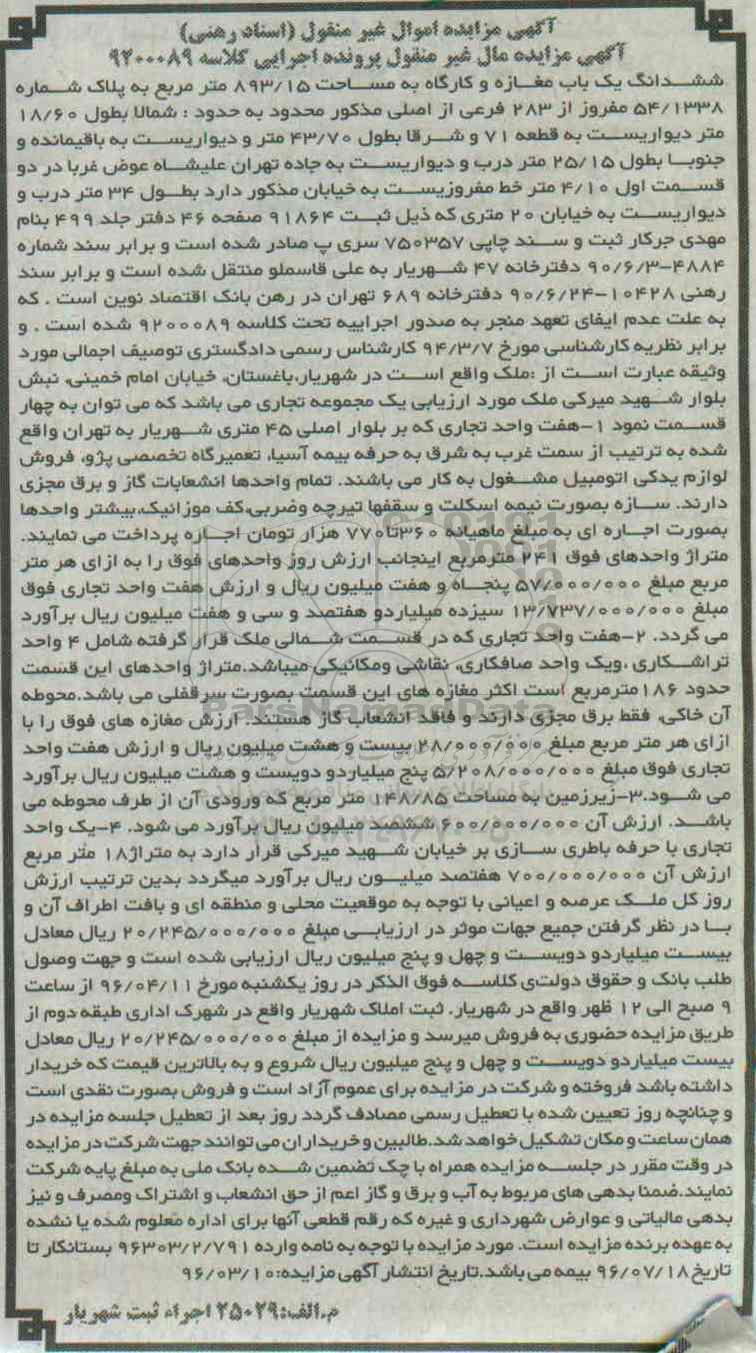 آگهی مزایده اموال غیر منقول (اسناد رهنی)
آگهی مزایده مال غیر منقول پرونده اجرایی کلاسه ۹۲۰۰۰۸۹
ششدانگ یک باب مغازه و کارگاه به مساحت ۸۹۳/۱۵ متر مربع به پلاک شماره
۵۴/۱۳۳۸ مفروز از ۲۸۳ فرعی از اصلی مذکور محدود به حدود : شمالا بطول ۱۸/۶۰
متر دیواریست به قطعه ۷۱ و شرقا بطول ۴۳/۷۰ متر و دیواریست به باقیمانده و
جنوبا بطول ۲۵/۱۵ متر درب و دیواریست به جاده تهران علیشاه عوض غربا در دو
قسمت اول ۴/۱۰ متر خط مفروزیست به خیابان مذکور دارد بطول ۳۴ متر درب و
دیواریست به خیابان ۲۰ متری که ذیل ثبت ۹۱۸۶۴ صفحه ۴۶ دفتر جلد ۴۹۹ بنام
مهدی جرکار ثبت و سند چاپی ۷۵۰۳۵۷ سری پ صادر شده است و برابر سند شماره
۴۸۸۴-۹۰/۶/۳ دفترخانه ۴۷ شهریار به علی قاسملو منتقل شده است و برابر سند
رهنی ۱۰۴۲۸-۹۰/۶/۲۴ دفترخانه ۶۸۹ تهران در رهن بانک اقتصاد نوین است . که
به علت عدم ایفای تعهد منجر به صدور اجراییه تحت کلاسه ۹۲۰۰۰۸۹ شده است . و
برابر نظریه کارشناسی مورخ ۹۴/۳/۷ کارشناس رسمی دادگستری توصیف اجمالی مورد
وثیقه عبارت است از :ملک واقع است در شهریار،باغستان، خیابان امام خمینی، نبش
بلوار شهید میرکی ملک مورد ارزیابی یک مجموعه تجاری می باشد که می توان به چهار
قسمت نمود ۱-هفت واحد تجاری که بر بلوار اصلی ۴۵ متری شهریار به تهران واقع
شده به ترتیب از سمت غرب به شرق به حرفه بیمه آسیا، تعمیرگاه تخصصی پژو، فروش
لوازم یدکی اتومبیل مشغول به کار می باشند. تمام واحدها انشعابات گاز و برق مجزی
دارند. سازه بصورت نیمه اسکلت و سقفها تیرچه وضربی،کف موزانیک،بیشتر واحدها
بصورت اجاره ای به مبلغ ماهیانه ۳۶۰تا۷۷۰ هزار تومان اجاره پرداخت می نمایند.
متراژ واحدهای فوق ۲۴۱ مترمربع اینجانب ارزش روز واحدهای فوق را به ازای هر متر
مربع مبلغ ۵۷/۰۰۰/۰۰۰ پنجاه و هفت میلیون ریال و ارزش هفت واحد تجاری فوق
مبلغ ۱۳/۷۳۷/۰۰۰/۰۰۰ سیزده میلیاردو هفتصد و سی و هفت میلیون ریال برآورد
می گردد. ۲-هفت واحد تجاری که در قسمت شمالی ملک قرار گرفته شامل ۴ واحد
تراشکاری ،ویک واحد صافکاری، نقاشی ومکانیکی میباشد.متراژ واحدهای این قسمت
حدود ۱۸۶مترمربع است اکثر مغازه های این قسمت بصورت سرقفلی می باشد.محوطه
آن خاکی، فقط برق مجزی دارند و فاقد انشعاب گاز هستند. ارزش مغازه های فوق را با
ازای هر متر مربع مبلغ ۲۸/۰۰۰/۰۰۰ بیست و هشت میلیون ریال و ارزش هفت واحد
تجاری فوق مبلغ ۵/۲۰۸/۰۰۰/۰۰۰ پنج میلیاردو دویست و هشت میلیون ریال برآورد
می شود.۳-زیرزمین به مساحت ۱۴۸/۸۵ متر مربع که ورودی آن از طرف محوطه می
باشد. ارزش آن ۶۰۰/۰۰۰/۰۰۰ ششصد میلیون ریال برآورد می شود. ۴-یک واحد
تجاری با حرفه باطری سازی بر خیابان شهید میرکی قرار دارد به متراژ۱۸ متر مربع
ارزش آن ۷۰۰/۰۰۰/۰۰۰ هفتصد میلیون ریال برآورد میگردد بدین ترتیب ارزش
روز کل ملک عرصه و اعیانی با توجه به موقعیت محلی و منطقه ای و بافت اطراف آن و
با در نظر گرفتن جمیع جهات موثر در ارزیابی مبلغ ۲۰/۲۴۵/۰۰۰/۰۰۰ ریال معادل
بیست میلیاردو دویست و چهل و پنج میلیون ریال ارزیابی شده است و جهت وصول
طلب بانک و حقوق دولتی کلاسه فوق الذکر در روز یکشنبه مورخ ۹۶/۰۴/۱۱ از ساعت
۹ صبح الی ۱۲ ظهر واقع در شهریار. ثبت املاک شهریار واقع در شهرک اداری طبقه دوم از
طریق مزایده حضوری به فروش میرسد و مزایده از مبلغ ۲۰/۲۴۵/۰۰۰/۰۰۰ ریال معادل
بیست میلیاردو دویست و چهل و پنج میلیون ریال شروع و به بالاترین قیمت که خریدار
داشته باشد فروخته و شرکت در مزایده برای عموم آزاد است و فروش بصورت نقدی است
و چنانچه روز تعیین شده با تعطیل رسمی مصادف گردد روز بعد از تعطیل جلسه مزایده در
همان ساعت و مکان تشکیل خواهد شد.طالبین و خریداران می توانند جهت شرکت در مزایده
در وقت مقرر در جلسه مزایده همراه با چک تضمین شده بانک ملی به مبلغ پایه شرکت
نمایند.ضمنا بدهی های مربوط به آب و برق و گاز اعم از حق انشعاب و اشتراک ومصرف و نیز
بدهی مالیاتی و عوارض شهرداری و غیره که رقم قطعی آنها برای اداره معلوم شده یا نشده
به عهده برنده مزایده است. مورد مزایده با توجه به نامه وارده ۹۶۳۰۳/۲/۷۹۱ بستانکار تا
تاریخ ۹۶/۰۷/۱۸ بیمه می باشد.تاریخ انتشار آگهی مزایده:۹۶/۰۳/۱۰
م.الف:۲۵۰۲۹ اجراء ثبت شهریار
ParsNamadData